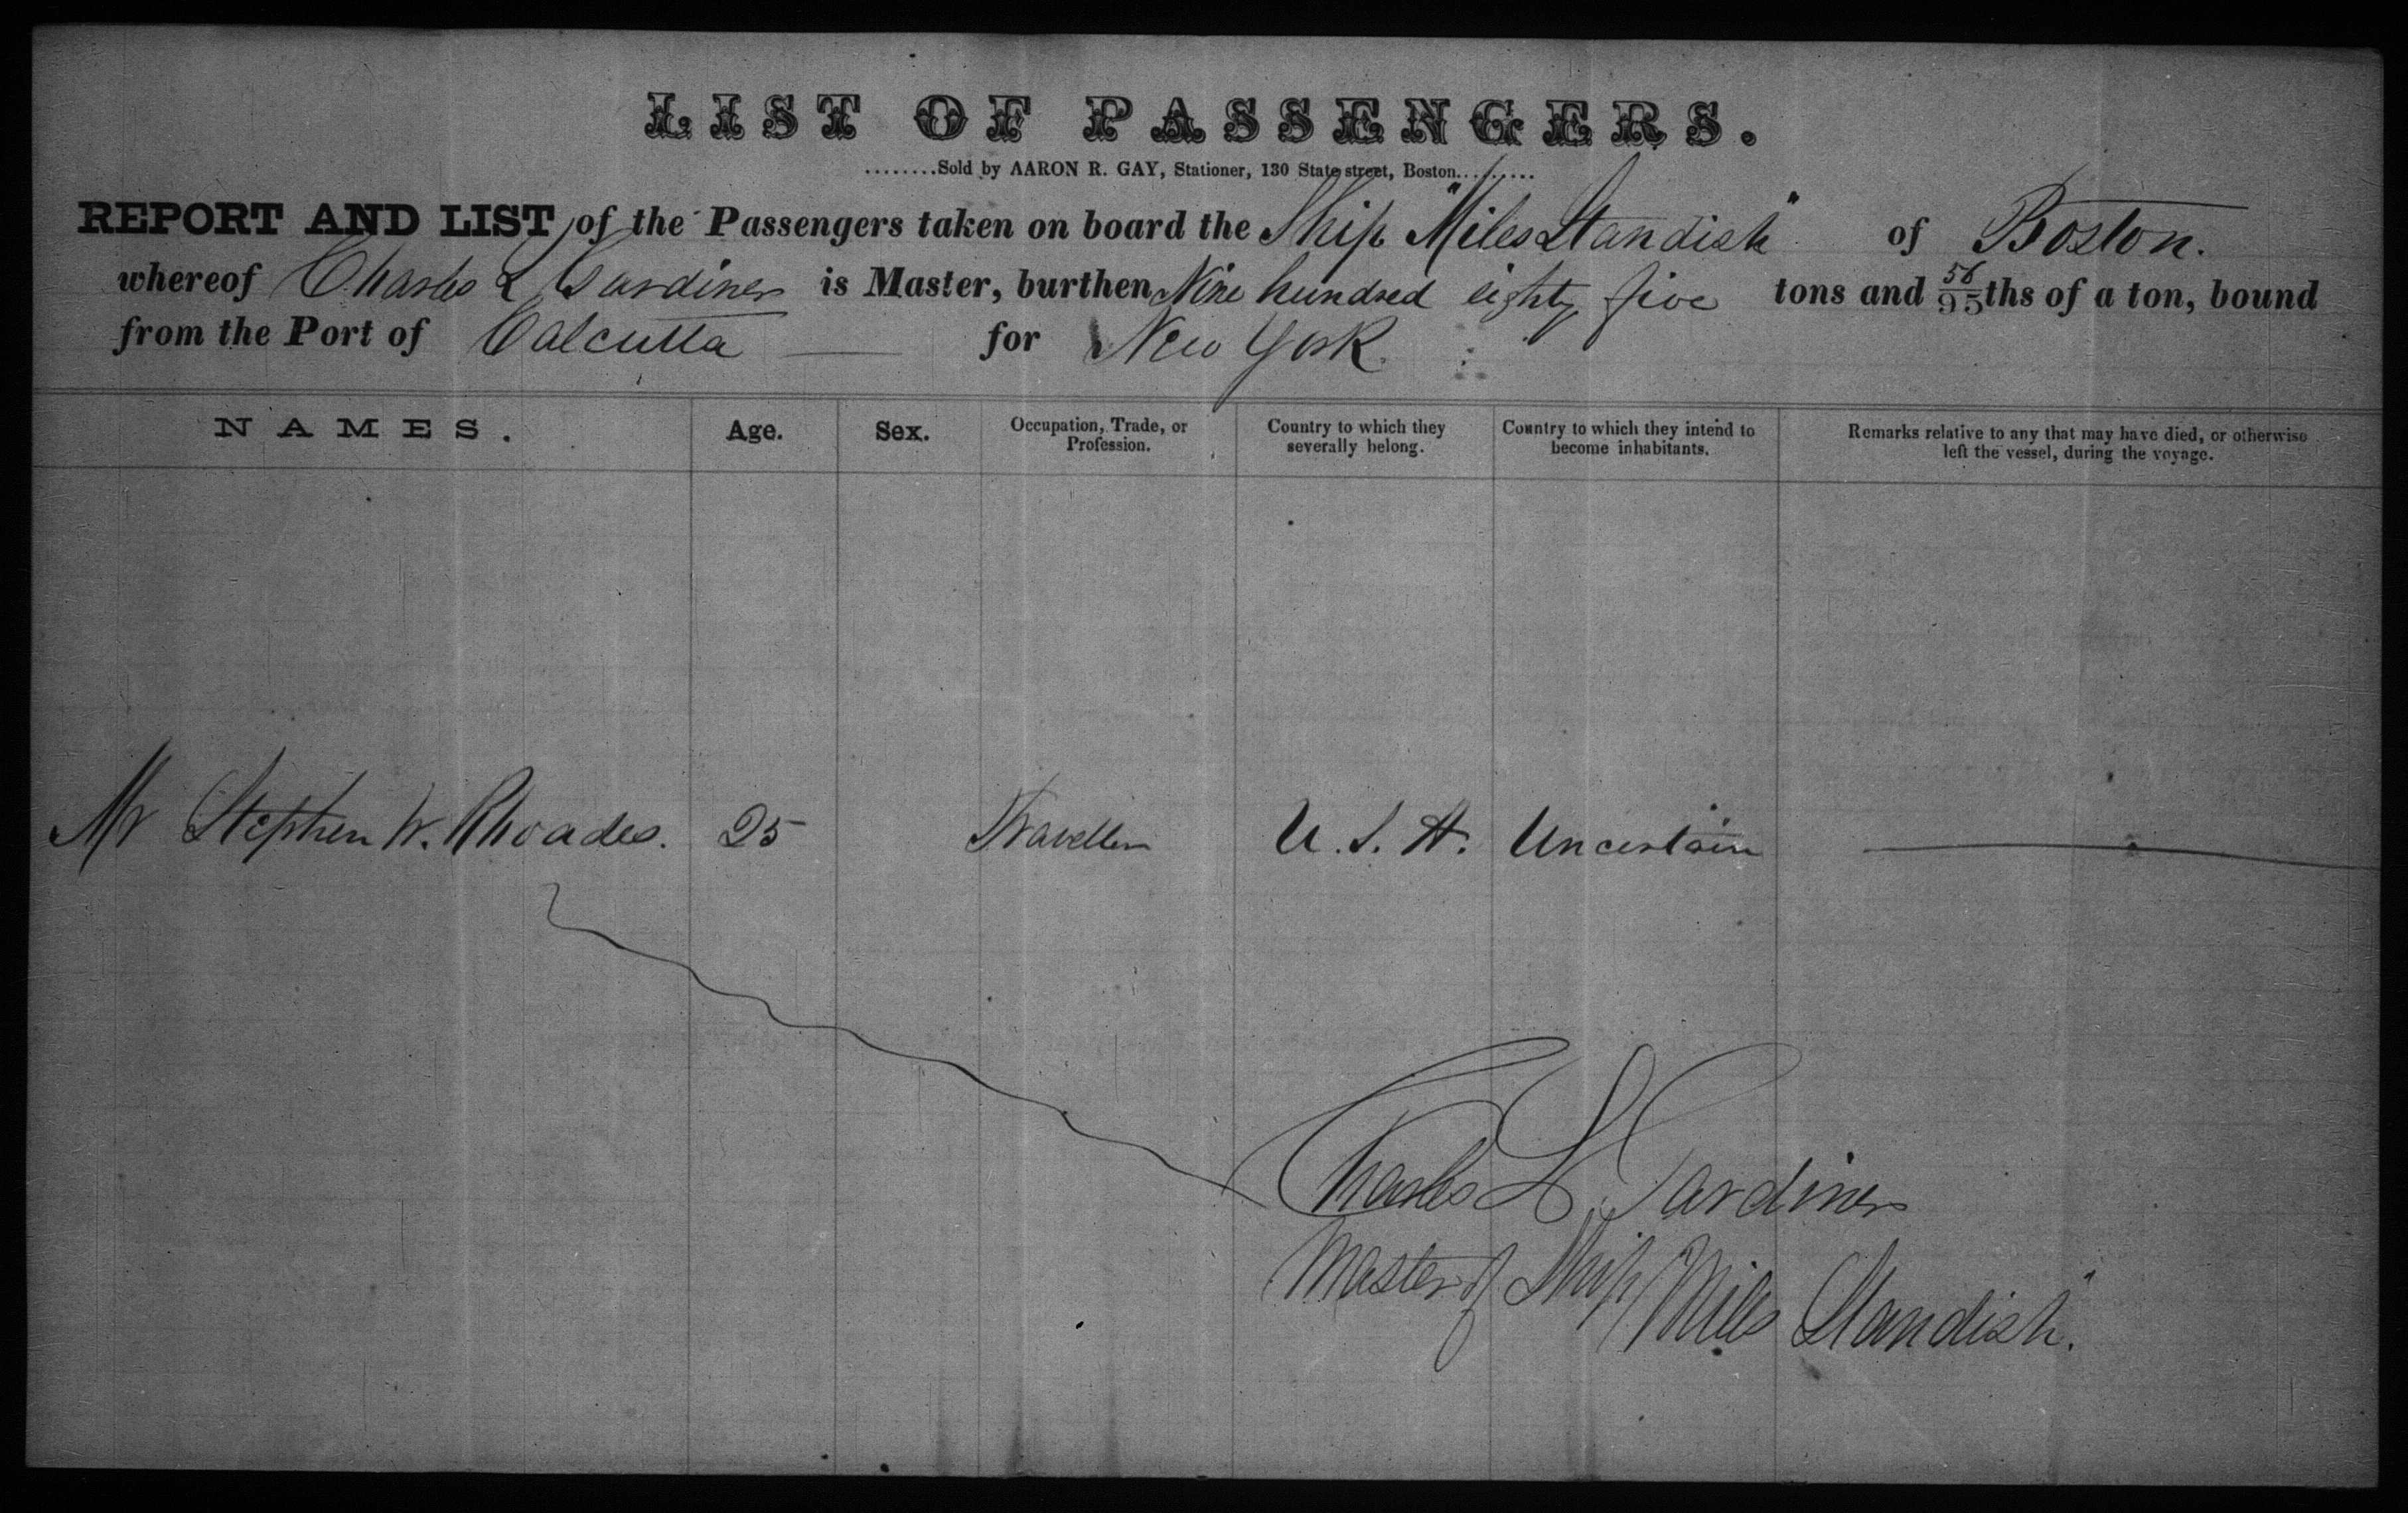 LIST OF PASSENGERS.
........Sold by AARON R. GAY, Stationer, 130 State street, Boston.........
REPORT AND LIST of the Passengers taken on board the Ship "Miles Standish" of Boston.
whereof Charles L Gardiner is Master, burthen Nine hundred eighty five tons and 56/95ths of a ton, bound
from the Port of Calcutta — for New York.
NAMES. Age. Sex. Occupation, Trade, or Profession. Country to which they severally belong. Country to which they intend to become inhabitants. Remarks relative to any that may have died, or otherwise left the vessel, during the voyage.
Mr Stephen W. Rhoades. 25 Traveller U.S.A. Uncertain
Charles L. Gardiner
Master of Ship "Miles Standish".